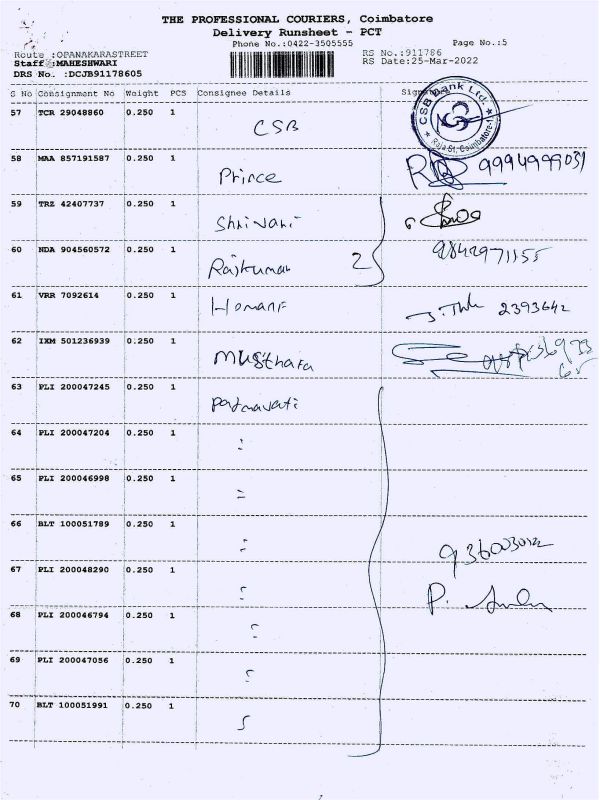 THE PROFESSIONAL COURIERS, Coimbatore
Delivery Runsheet - PCT
Phone No.:0422-3505555
Page No.:5
Route :OPANAKARASTREET
RS No.:911786
Staff :MAHESHWARI
RS Date:25-Mar-2022
DRS No. :DCJB91178605
S No Consignment No Weight PCS Consignee Details
CSB Bank Ltd. Raja St, Coimbatore-1
57 TCR 29048860 0.250 1 CSB
58 MAA 857191587 0.250 1 Prince 9994999031
59 TRZ 42407737 0.250 1
60 NDA 904560572 0.250 1 Rajkumar 2 9842971155
61 VRR 7092614 0.250 1 2393642
62 IXM 501236939 0.250 1 Musthafa
63 PLI 200047245 0.250 1 Padmavati
64 PLI 200047204 0.250 1
65 PLI 200046998 0.250 1
66 BLT 100051789 0.250 1
67 PLI 200048290 0.250 1
68 PLI 200046794 0.250 1
69 PLI 200047056 0.250 1
70 BLT 100051991 0.250 1